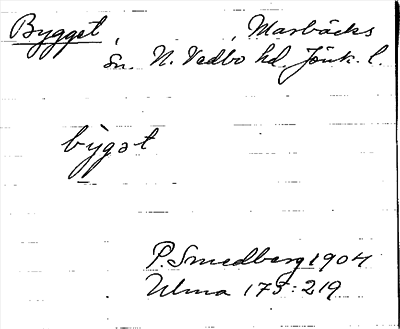 Bygget, , Marbäcks
Sn. N. Vedbo hd. Jönk. l.
bygət
P. Smedberg 1904
Ulma 175:219